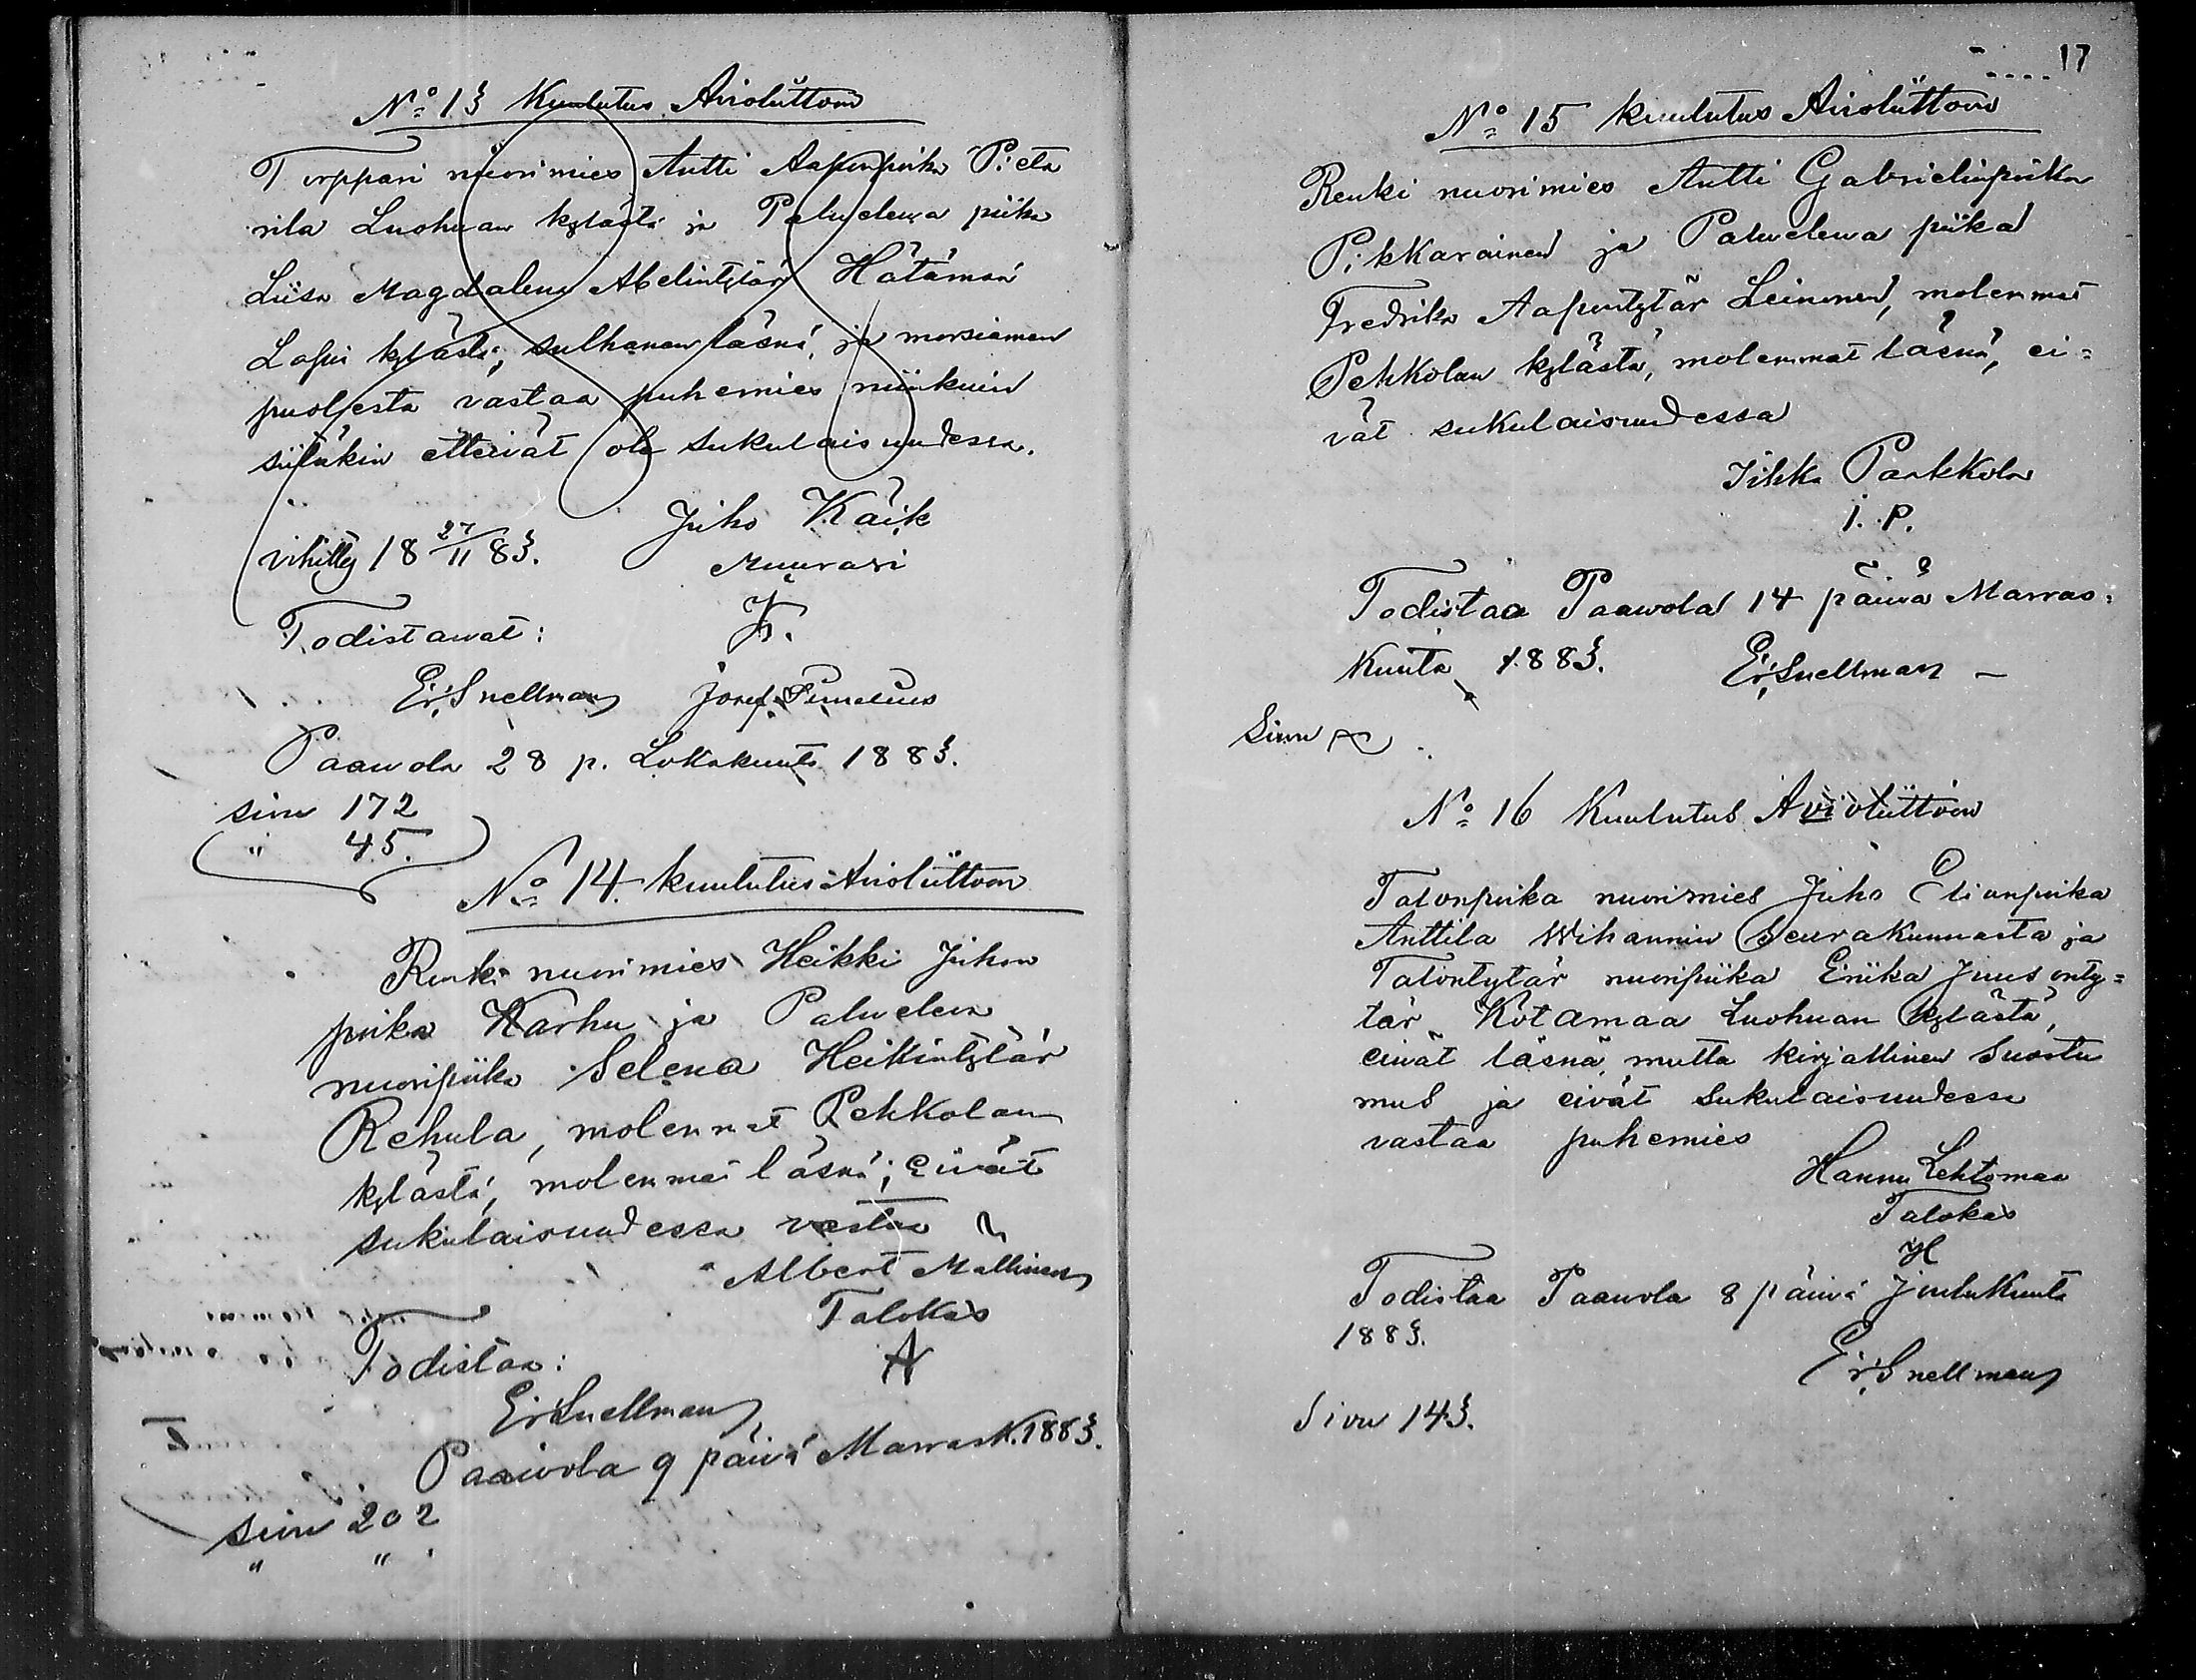 No 13 Kuulutus Avioliittoon
Torppari nuorimies Antti Aaponpoika Pieta
rila Luohuan kylästä ja Palvelewa piika
Liisa Magdalena Abelintytär Hätämaa
Lapin kylästä; sulhanen läsnä, ja morsiamen
puolesta vastaa puhemies niinkuin
siitäkin etteivät ole sukulaisuudessa.
Juho Käik
vihitty 18 27/11 83.
Muurari
Todistawat:
Er. Snellman Josef
Paavola 28 p. Lokakuuta 1883.
sivu 172
" 45.
No 14. kuulutus Avioliittoon
Renki nuorimies Heikki Juhon
poika Karhu ja Palveleva
nuoripiika Selena Heikintytär
Rehula, molemmat Pehkolan
kylästä, molemmat läsnä; eivät
sukulaisuudessa vastaa
Albert Mallinen
Talokas
Todistaa:
A
Er. Snellman
Paawola 9 päivä Marrask. 1883.
sivu 202
" "
17
No 15 kuulutus Avioliittoon
Renki nuorimies Antti Gabrielinpoika
Pikkarainen ja Palvelewa piika
Fredrika Aapontytär Leinonen, molemmat
Pehkolan kylästä, molemmat läsnä, ei=
vät sukulaisuudessa
Iikka Paakkola
I. P.
Todistaa Paawola 14 päivä Marras=
kuuta 1883. Er. Snellman
Sivu
No 16 Kuulutus Avioliittoon
Talonpoika nuorimies Juho Elianpoika
Anttila Wihannin Seurakunnasta ja
Talontytär nuoripiika Eriika Juusonty=
tär Kotamaa Luohuan kylästä,
eivät läsnä, mutta kirjallinen Suostu
mus ja eivät sukulaisuudessa
vastaa puhemies
Hannu Lehtomaa
Talokas
H
Todistaa Paavola 8 päivä Joulukuuta
1883.
Er. Snellman
Sivu 143.